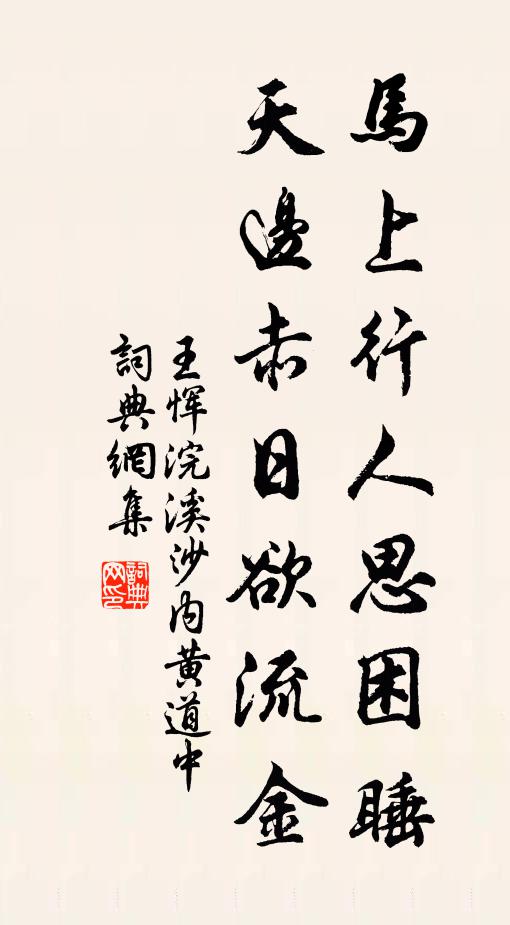 馬上行人思困睡
天邊赤日欲流金
王惲浣溪沙内黄道中
詞典網集
詞典网印